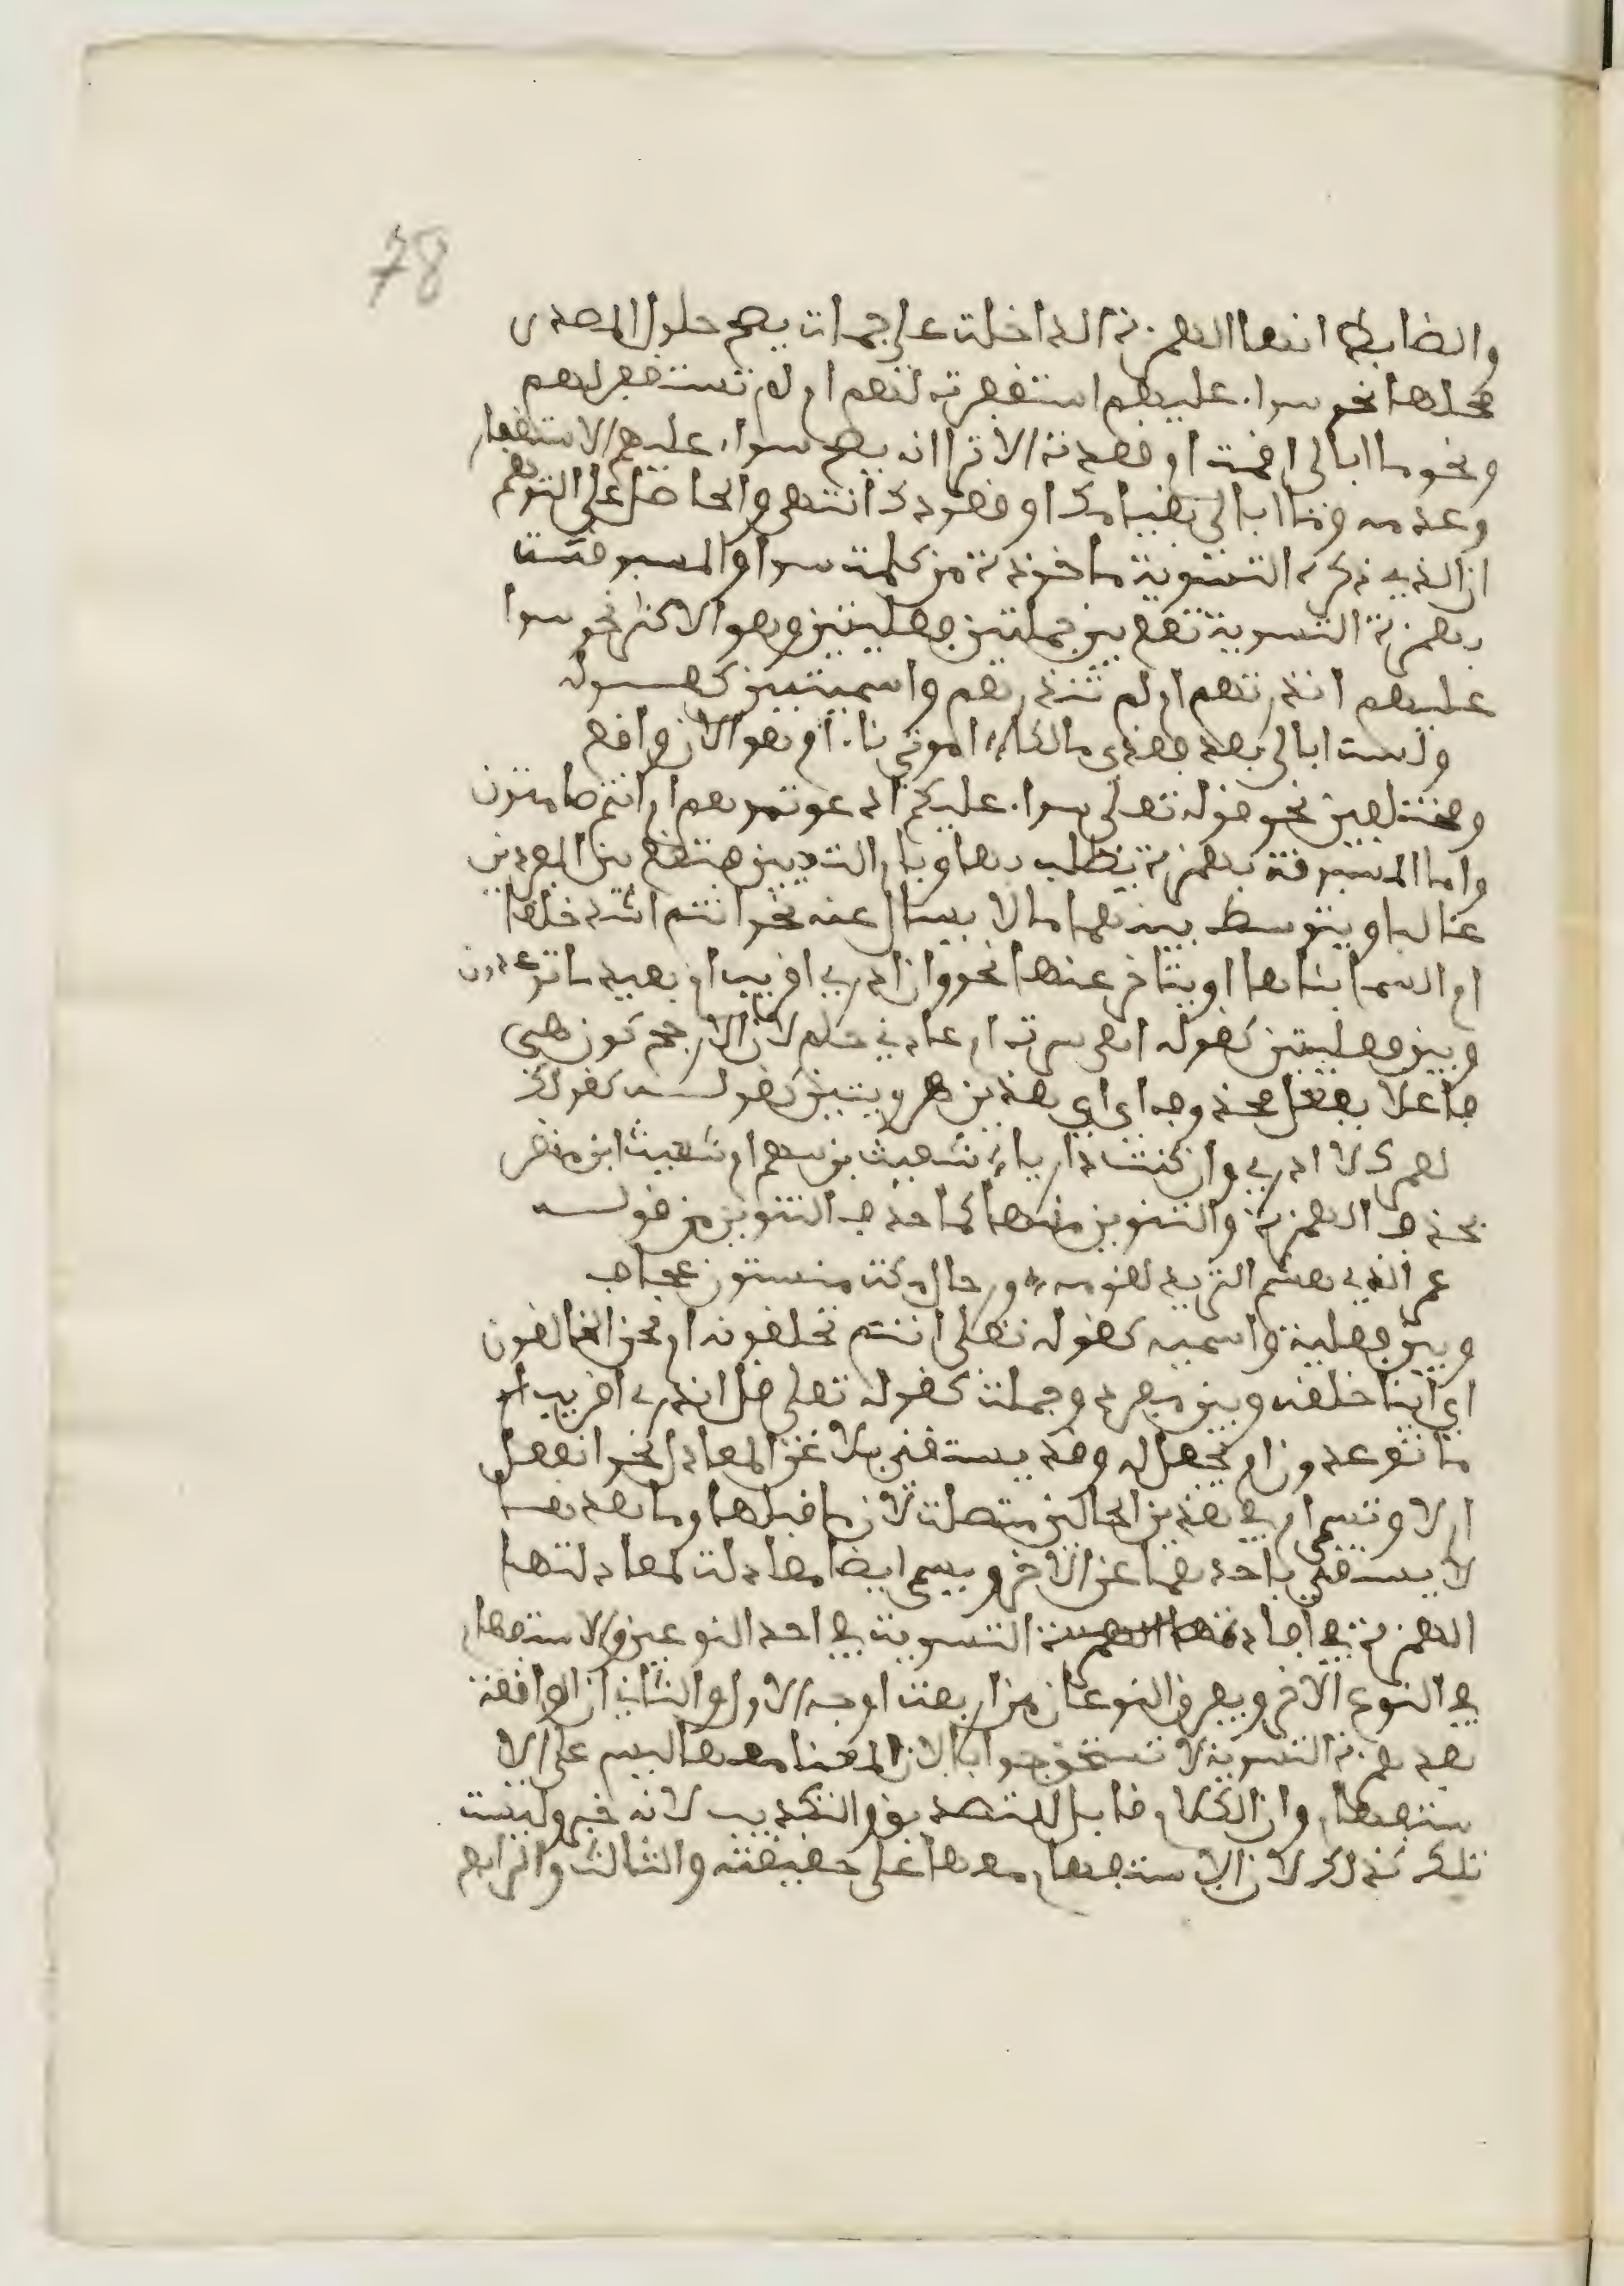 78
والضابط انها الهمزة الداخلت على جملت يصح حلول المصدر
محلها نحو سوا. عليهم استغفرت لهم ام لم تستغفر لهم
ونحو ما ابالي اقمت ام قعدت الا ترا انه يصح سوا. عليهم الاستغفار
وعدمه وما ابالي بقيامك او قعودك انتهى والحاصل على التوهم
ان الذي ذكره التسوية ماخوذة من كلمت سوا والمسبوقت
بهمزة التسوية تقع بين جملتين فعليتين وهو الاكثر نحو سوا
عليهم انذرتهم ام لم تنذرهم واسميتين كقولـه
ولست ابالي بعد فقدي مالكا اموتي نا. ام هو الان واقع
ومختلفين نحو قوله تعلى سوا. عليكم ادعوتموهم ام انتم صامتون
واما المسبوقة بهمزة يطلب بها وبام التعيين فتقع بين المفردين
غالبا ويتوسط بينهما ما لا يسال عنه نحو انتم اشد خلقا
ام السما بناها او يتاخر عنها نحو وان ادري اقريب ام بعيد ما توعدون
وبين فعليتين كقوله اهي سرت ام عادني حلم لان الارجح كون هي
فاعلا بفعل محذوف اي اي هذين هو وبين كقولـه كقولك
لعمرك لا ادري وان كنت داريا شعيث بن سهم ام شعيث ابن منقر
بحذف الهمزة والتنوين منهما كما حذف التنوين من قولـه
عمر الذي هشم الثريد لقومه ورجال مكت مسنتون عجاف
وبين فعلية واسميه كقوله تعلى انتم تخلقونه ام نحن الخالقون
اي اينا خلقه وبين مفرد وجملت كقوله تعلى قل ان ادري اقريب ام
ما توعدون ام يجعل له وقد يستغنى بلا عن المعادل نحو اتفعل
ام لا وتسمى ام في هذين الحالين متصلت لان ما قبلها وما بعدها
لا يستغنى باحدهما عن الاخر ويسمى ايضا معادلت لمعادلتها
الهمزة في افادتها التسوية في احد النوعين والاستفهام
في النوع الاخر ويفرق النوعان من اربعت اوجه الاول والثاني ان الواقعة
بعد همزة التسوية لا تستحق جوابا لان المعنا معها ليس على الا
ستفهام وان الكلام قابل للتصديق والتكذيب لانه خبر وليست
تلك كذلك لان الاستفهام معها على حقيقته والثالث والرابع